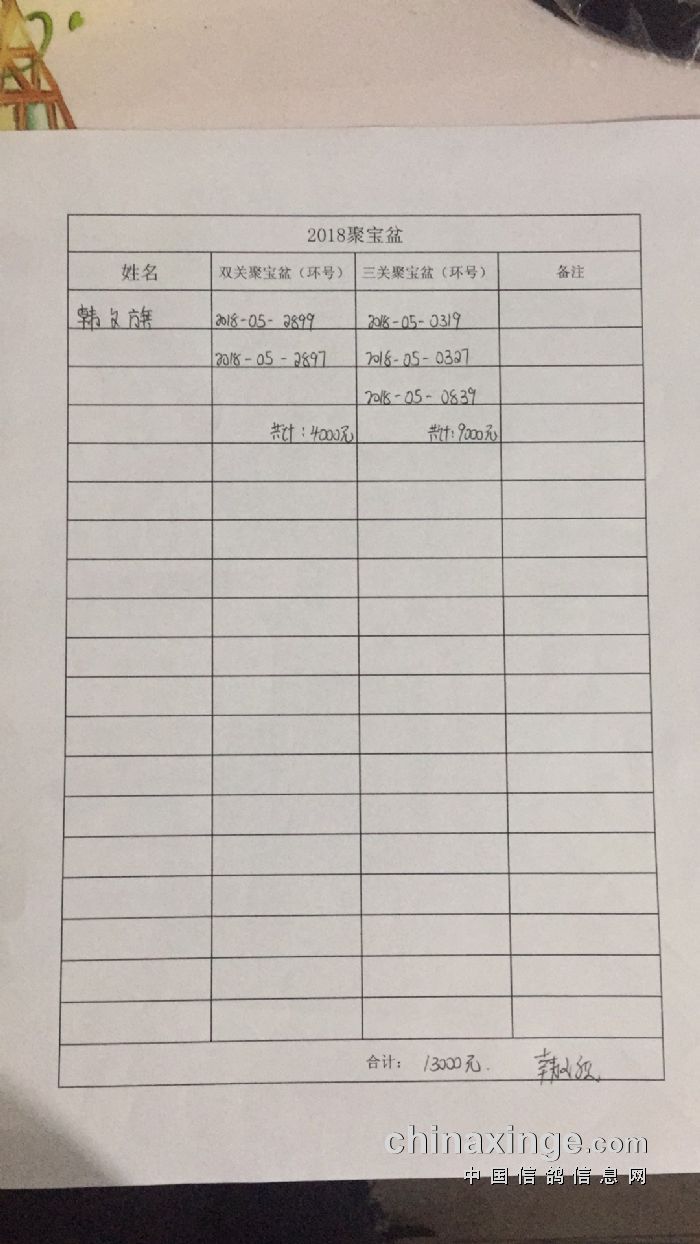 2018聚宝盆
姓名 双关聚宝盆（环号） 三关聚宝盆（环号） 备注
韩文旗 2018-05-2899 2018-05-0319
2018-05-2897 2018-05-0327
2018-05-0839
共计：4000元 共计：9000元
合计： 13000元.
chinaxinge.com
中国信鸽信息网